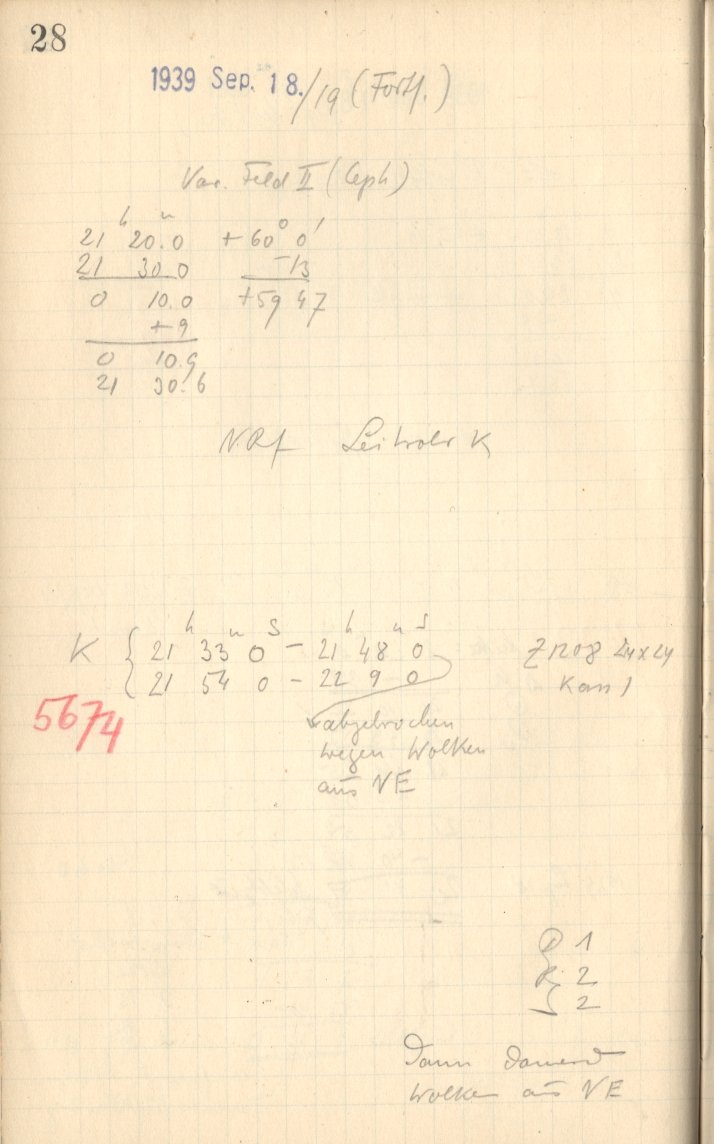 28
1939 Sep. 18./19 (Fortf.)
Var. Feld II (Ceph)
21 h 20.0 m + 60° 0'
21 30.0 -13
0 10.0 +59 47
+9
0 10.9
21 30.6
NRf K
K { 21 h 33 m 0 s - 21 h 48 m 0 s
{ 21 54 0 - 22 9 0
Z 1208 24x24
Kas 1
5674
abgebrochen
wegen Wolken
aus NE
1
R 2
2
Dann dauernd
Wolken aus NE